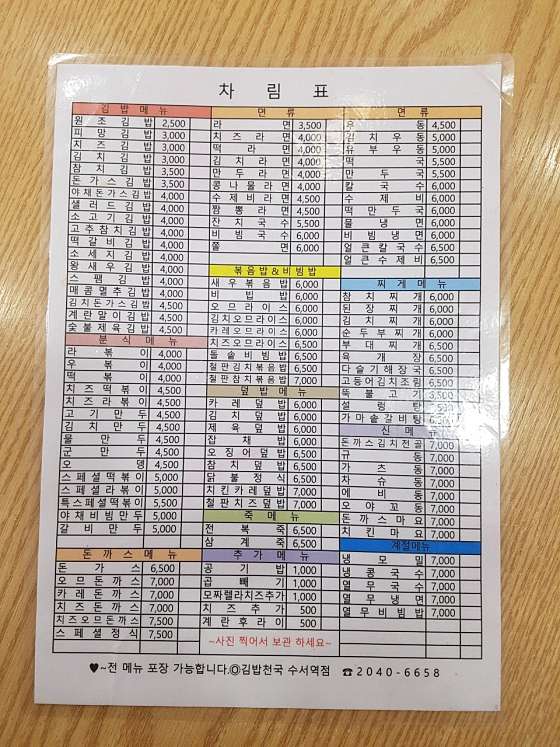 차림표
김밥메뉴
원조김밥 2,500
피망김밥 3,000
치즈김밥 3,000
김치김밥 3,000
참치김밥 3,500
돈가스김밥 3,500
야채돈가스김밥 4,000
샐러드김밥 4,000
소고기김밥 4,000
고추참치김밥 4,000
떡갈비김밥 4,000
소세지김밥 4,000
왕새우김밥 4,000
스팸김밥 4,000
매콤멸추김밥 4,000
김치돈가스김밥 4,500
계란말이김밥 4,500
숯불제육김밥 4,500
분식메뉴
라볶이 4,000
우볶이 4,000
떡볶이 4,000
치즈떡볶이 4,500
치즈라볶이 4,500
고기만두 4,500
김치만두 4,500
물만두 4,500
군만두 4,500
오뎅 4,500
스페셜떡볶이 5,000
스페셜라볶이 5,000
특스페셜떡볶이 5,500
야채비빔만두 5,000
갈비만두 5,000
돈까스메뉴
돈가스 6,500
오므돈까스 7,000
카레돈까스 7,000
치즈돈까스 7,000
치즈오므돈까스 7,500
스페셜정식 7,500
면류
라면 3,500
치즈라면 4,000
떡라면 4,000
김치라면 4,000
만두라면 4,000
콩나물라면 4,000
수제비라면 4,500
짬뽕라면 4,500
잔치국수 5,500
비빔국수 6,000
쫄면 6,000
볶음밥&비빔밥
새우볶음밥 6,000
비빔밥 6,000
오므라이스 6,000
김치오므라이스 6,000
카레오므라이스 6,500
치즈오므라이스 6,500
돌솥비빔밥 6,500
철판김치볶음밥 6,500
철판참치볶음밥 7,000
덮밥메뉴
카레덮밥 6,000
김치덮밥 6,000
제육덮밥 6,000
잡채밥 6,000
오징어덮밥 6,500
참치덮밥 6,500
닭불정식 6,500
치킨카레덮밥 7,000
철판치즈덮밥 7,000
죽메뉴
전복죽 6,500
삼계죽 6,500
추가메뉴
공기밥 1,000
곱빼기 1,000
모짜렐라치즈추가 1,000
치즈추가 500
계란후라이 500
~사진 찍어서 보관 하세요~
면류
우동 4,500
김치우동 5,000
유부우동 5,000
떡국 5,500
만두국 5,500
칼국수 6,000
수제비 6,000
떡만두국 6,000
물냉면 6,000
비빔냉면 6,000
얼큰칼국수 6,500
얼큰수제비 6,500
찌게메뉴
참치찌개 6,000
된장찌개 6,000
김치찌개 6,000
순두부찌개 6,000
부대찌개 6,500
육개장 6,500
다슬기해장국 6,500
고등어김치조림 6,500
뚝불고기
설렁탕
가마솥갈비탕
신메뉴
돈까스김치전골 7,000
규동 7,000
가츠동 7,000
차슈동 7,000
에비동 7,000
오야꼬동 7,000
돈까스마요 7,000
치킨마요 7,000
계절메뉴
냉모밀 7,000
냉콩국수 7,000
열무국수 7,000
열무냉면 7,000
열무비빔밥 7,000
♥~전 메뉴 포장 가능합니다.◎김밥천국 수서역점 ☎2040-6658